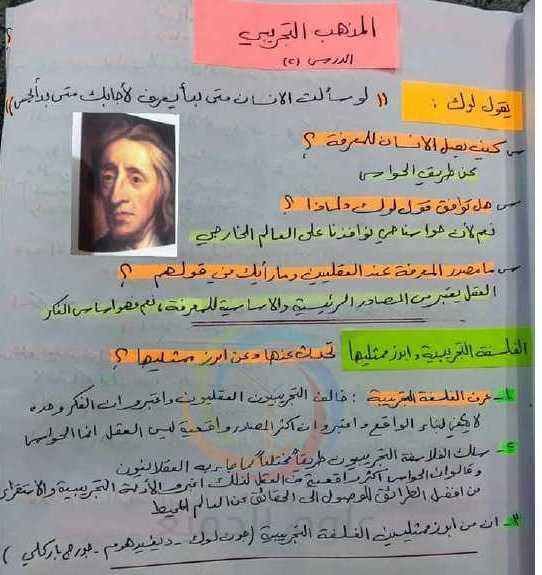 المذهب التجريبي
الدرس (٢)
يقول لوك : (( لو سألت الانسان متى بدأ يعرف لأجابك متى بدأ يحس ))
س كيف يصل الانسان للمعرفة ؟
عن طريق الحواس
س هل توافق قول لوك ولماذا ؟
نعم لأن حواسنا هي نوافذنا على العالم الخارجي
س ما مصدر المعرفة عند العقليين وما رأيك في قولهم ؟
العقل يعتبر من المصادر الرئيسية والاساسية للمعرفة ، نعم فهو اساس الفكر
الفلسفة التجريبية وابرز ممثليها تحدث عنها وعن ابرز ممثليها ؟
١- عرف الفلسفة التجريبية : خالف التجريبيون العقليون واعتبروا ان الفكر وحده
لا يمكن لبناء الواقع واعتبروا ان اكثر المصدر واقعية ليس العقل انما الحواس
٢- سلك الفلاسفة التجريبيون طريقاً مختلفاً عما جاء به العقلانيون
وقالوا ان الحواس اكثر واقعية من العقل لذلك اعتبروا الأدلة التجريبية والاستقراء
من افضل الطرائق للوصول الى الحقائق عن العالم المحيط
٣- ان من ابرز ممثليين الفلسفة التجريبية (جون لوك - ديفيد هوم - جورج باركلي )